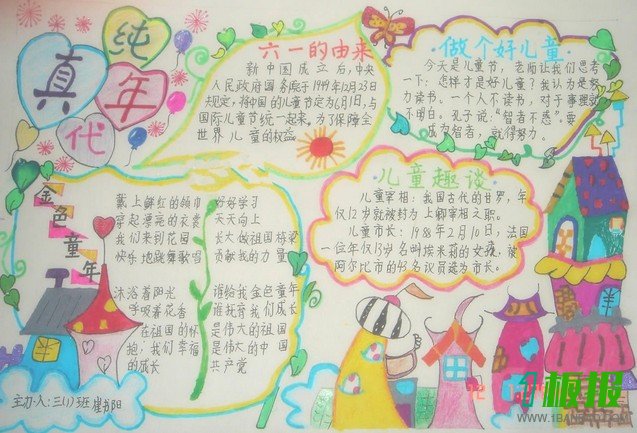 纯真年代
六一的由来
新中国成立后,中央
人民政府国务院于1949年12月23日
规定,将中国的儿童节定为6月1日,与
国际儿童节统一起来。为了保障全
世界儿童的权益。
做个好儿童
今天是儿童节,老师让我们思考
一下:怎样才是好儿童?我认为是努
力读书。一个人不读书,对于事理就
不明白。孔子说:“智者不惑”。要
成为智者,就得努力。
金色童年
戴上鲜红的领巾
穿起漂亮的衣裳
我们来到花园
快乐地跳舞歌唱
沐浴着阳光
呼吸着花香
在祖国的怀
抱,我们幸福
的成长
好好学习
天天向上
长大做祖国栋梁
贡献我的力量
谁给我金色童年
谁抚育我们成长
是伟大的祖国
是伟大的中国
共产党
儿童趣谈
儿童宰相:我国古代的甘罗,年
仅12岁就被封为上卿宰相之职。
儿童市长:1988年2月10日,法国
一位年仅13岁名叫埃米莉的女孩,被
阿尔比市的43名议员选为市长。
主办人:三(1)班
板报